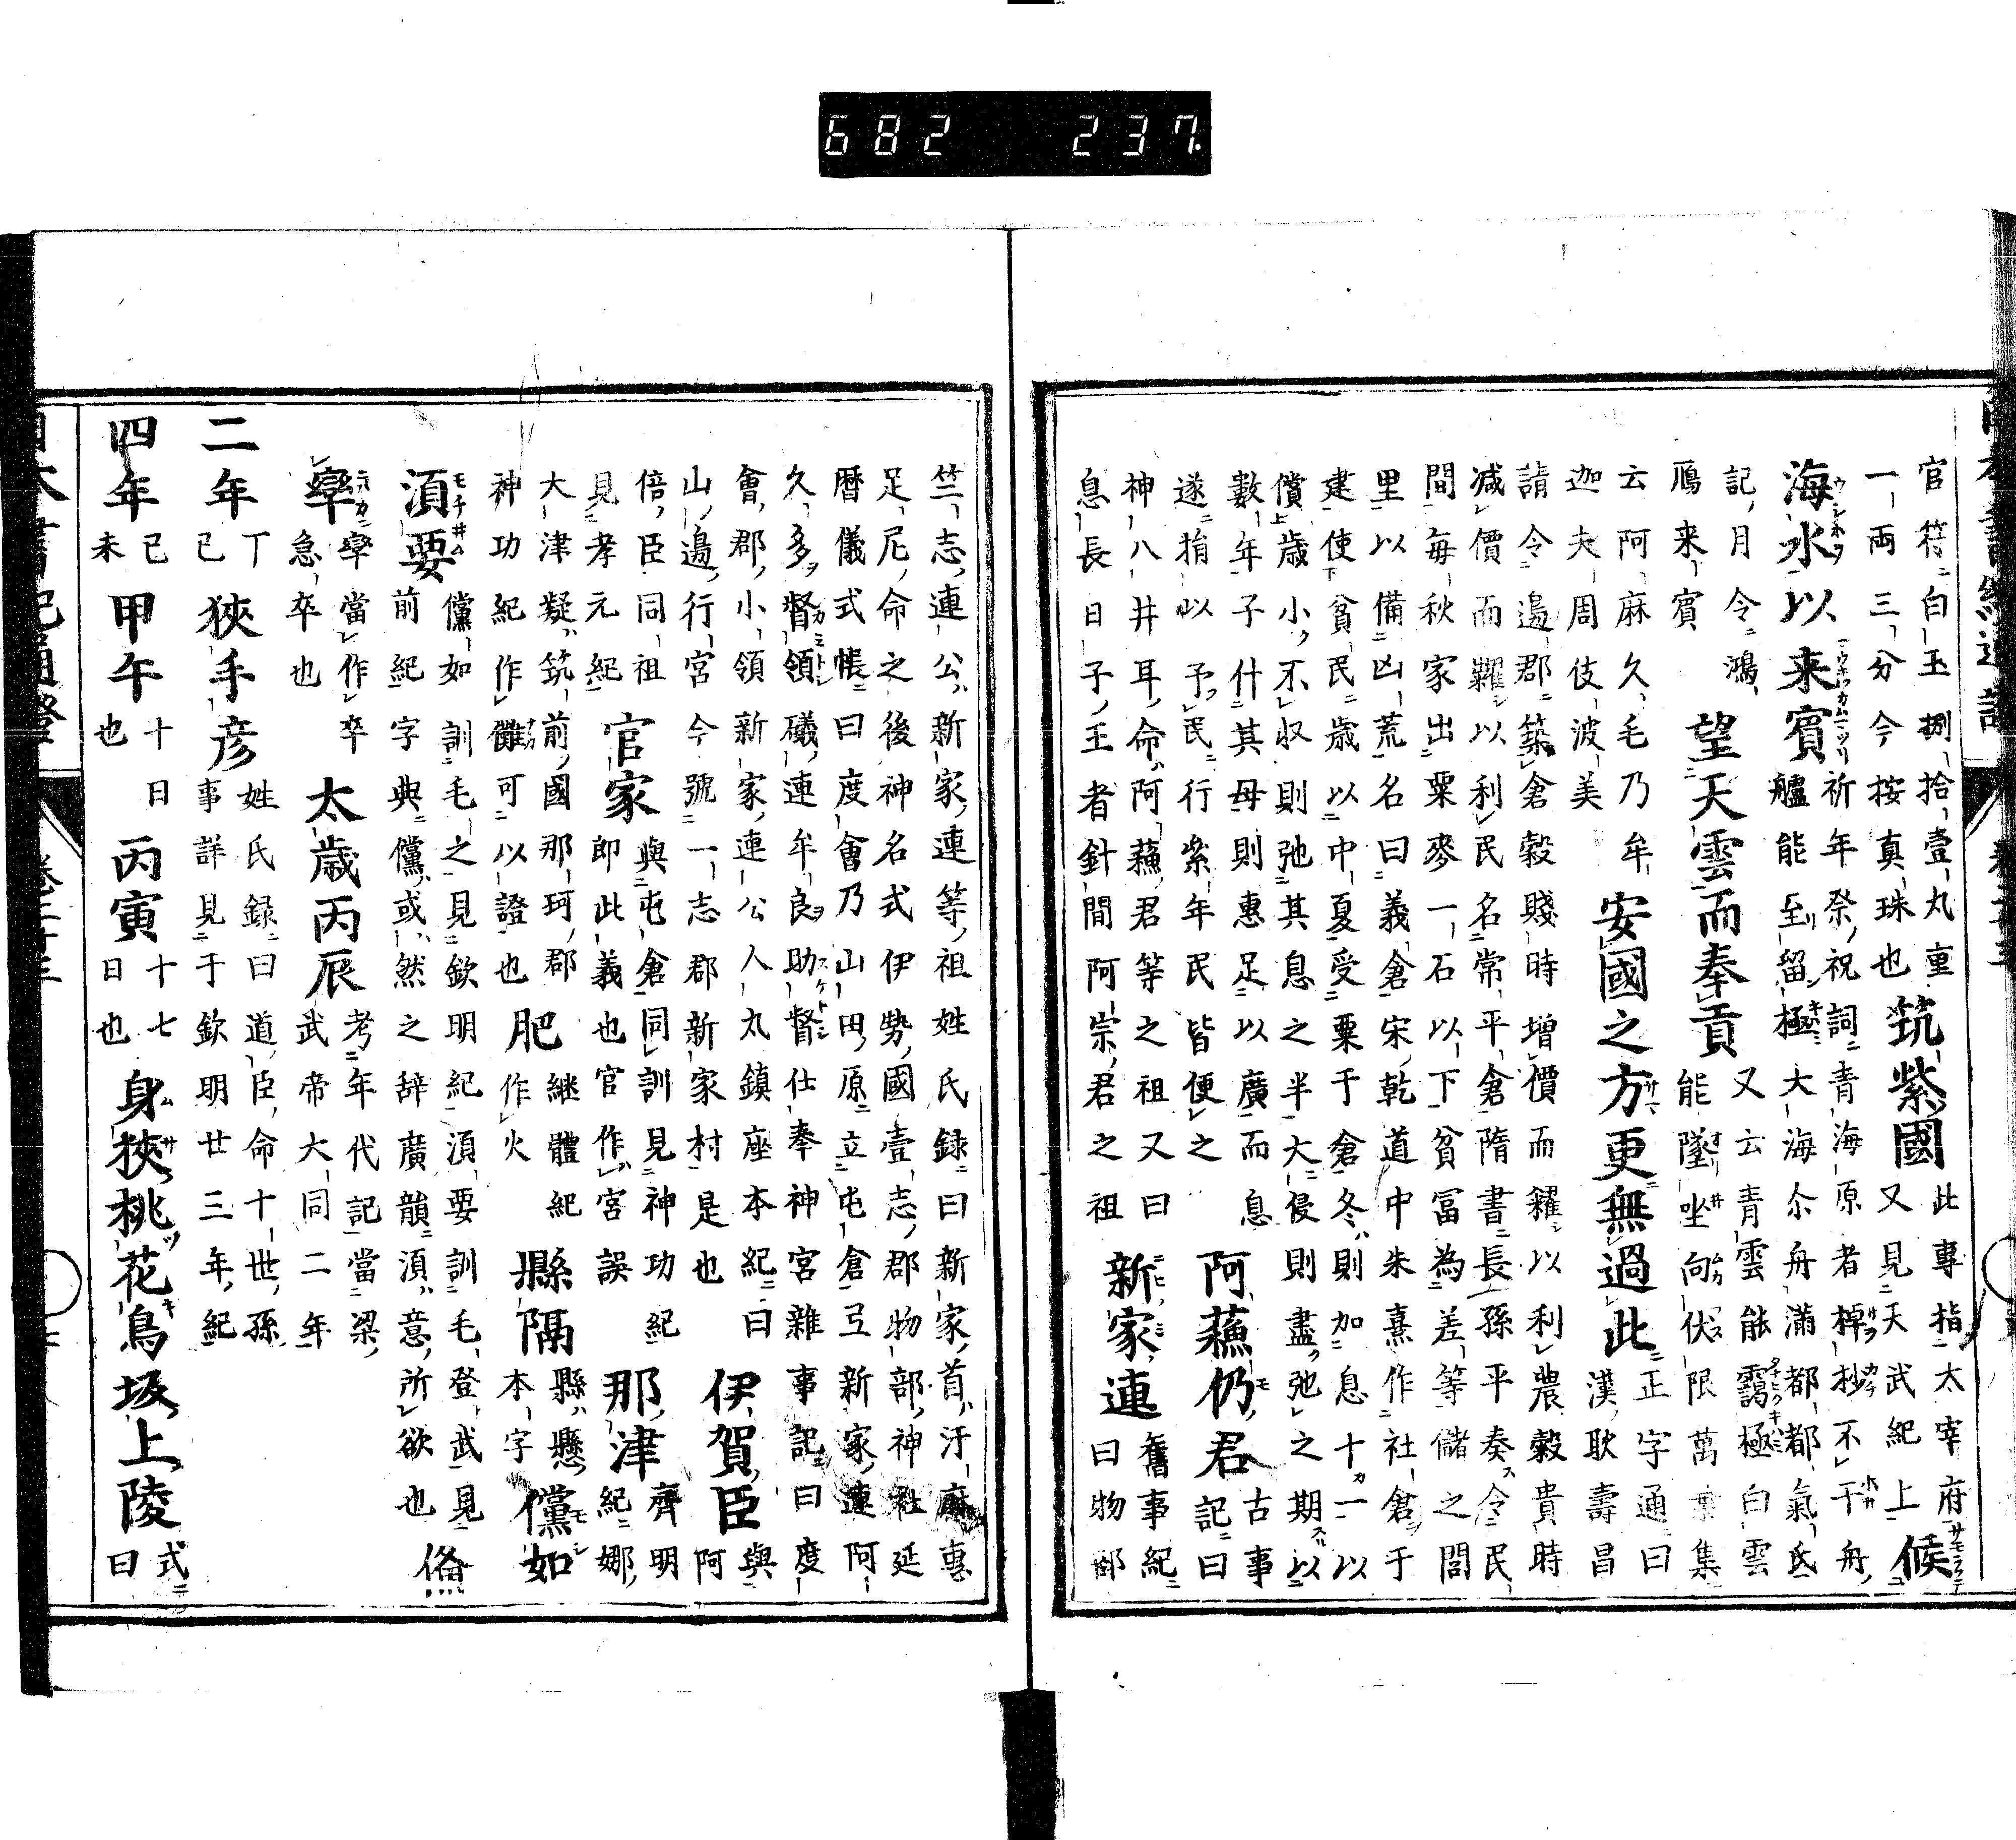 682 237
官符白玉捌拾壹丸重
一両三分今按真珠也
筑紫國
此專指太宰府
又見天武紀上
候
海水以来賓
祈年祭祝詞青海原者棹柁不干舟
艫能至留極大海尓舟滿都都氣氐
又云青雲能靄極白雲
能墜坐向伏限萬葉集
記月令鴻
鴈来賓
望天雲而奉貢
云阿麻久毛乃牟
迦夫周伎波美
安國之方更無過此
正字通曰
漢耿壽昌
請令邉郡築倉穀賤時增價而糴以利農穀貴時
减價而糶以利民名常平倉隋書長孫平奏令民
間每秋家出粟麥一石以下貧冨為差等儲之閭
里以備凶荒名曰義倉宋乾道中朱熹作社倉于
建使貧民歳以中夏受粟于倉冬則加息十一以
償歳小不収則弛其息之半大侵則盡弛之期以
數年子什其母則惠足以廣而息
遂捐以予民行紫年民皆便之
阿蘓仍君
古事
記曰
神八井耳命阿蘓君等之祖又曰
息長日子王者針間阿宗君之祖
新家連
舊事紀
曰物部
竺志連公新家連等祖姓氏録曰新家首汙麻專
足尼命之後神名式伊勢國壹志郡物部神社延
暦儀式帳曰度會乃山田原立屯倉弖新家連阿
久多督領礒連牟良助督仕奉神宮雜事記曰度
會郡小領新家連公人丸鎮座本紀曰
山邉行宮今號一志郡新家村是也
伊賀臣
與阿
倍臣同祖
見孝元紀
官家
與屯倉同訓見神功紀
即此義也官作宮誤
那津
齊明
紀娜
大津凝筑前國那珂郡
神功紀作儺可以證也
肥
継體紀
作火
縣隔
縣懸
本字
儻如
須要
儻如訓毛之見欽明紀須要訓毛登武見
前紀字典儻或然之辞廣韻須意所欲也
脩
㝈
㝈當作卒
急卒也
太歳丙辰
考年代記當梁
武帝大同二年
二年
丁
巳
狹手彦
姓氏録曰道臣命十世孫
事詳見于欽明廿三年紀
四年
己
未
甲午
十日
也
丙寅
十七
日也
身狹桃花鳥坂上陵
式
曰